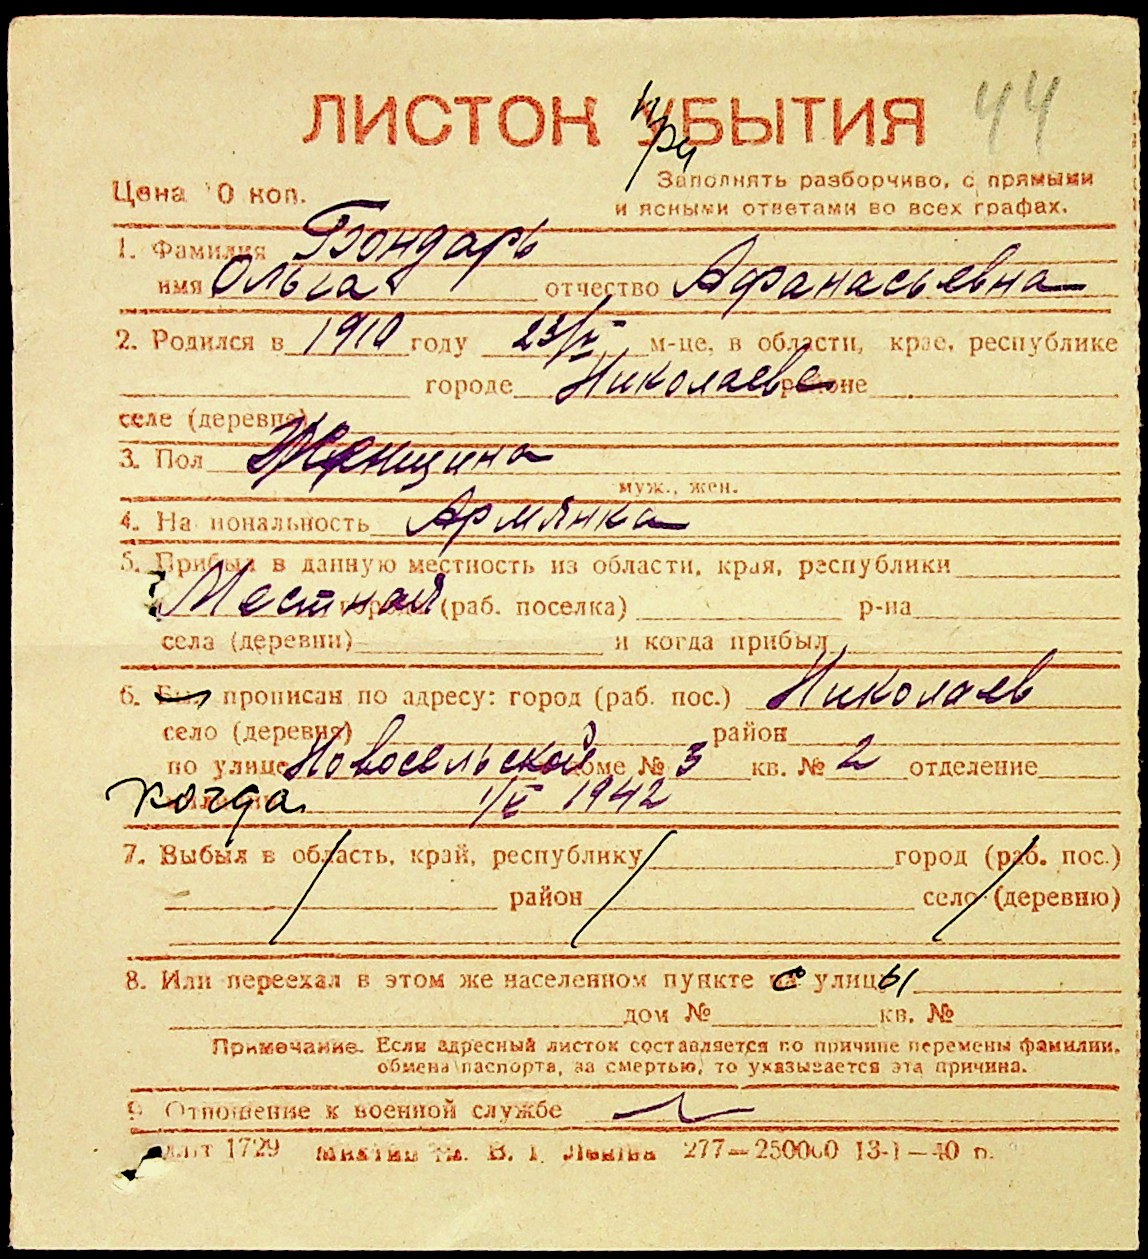 ЛИСТОК УБЫТИЯ
при
44
Цена 0 коп.
Заполнять разборчиво, с прямыми
и ясными ответами во всех графах.
1. Фамилия Бондарь
имя Ольга отчество Афанасьевна
2. Родился в 1910 году 23/IV м-це, в области, крае, республике
городе Николаеве районе
селе (деревне)
3. Пол Женщина
муж., жен.
4. Национальность Армянка
5. Прибыл в данную местность из области, края, республики
Местная города (раб. поселка) р-на
села (деревни) и когда прибыл
6. Был прописан по адресу: город (раб. пос.) Николаев
село (деревня) район
по улице Новосельской доме № 3 кв. № 2 отделение
когда 1942
7. Выбыл в область, край, республику город (раб. пос.)
район село (деревню)
8. Или переехал в этом же населенном пункте с улицы
дом № кв. №
Примечание. Если адресный листок составляется по причине перемены фамилии,
обмена паспорта, за смертью, то указывается эта причина.
9. Отношение к военной службе
1729 В. І. Леніна 277—250000 13-I—40 п.